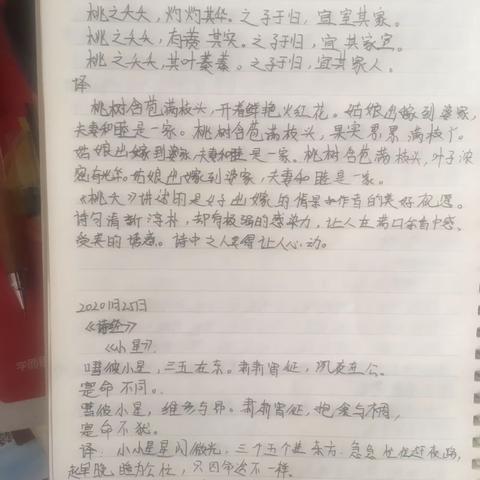 桃之夭夭，灼灼其华。之子于归，宜室其家。
桃之夭夭，有蕡其实。之子于归，宜其家室。
桃之夭夭，其叶蓁蓁。之子于归，宜其家人。
译
桃树含苞满枝头，开着鲜艳火红花。姑娘出嫁到婆家，
夫妻和睦是一家。桃树含苞满枝头，果实累累满枝丫。
姑娘出嫁到婆家，夫妻和睦是一家。桃树含苞满枝头，叶子浓
密有光华。姑娘出嫁到婆家，夫妻和睦是一家。
《桃夭》讲述的是女子出嫁的情景和作者的美好祝愿。
诗句清新淳朴，却有极强的感染力，让人在
的情意。诗中之人让人心动。
2020 1月25日
《诗经》
《小星》
嘒彼小星，三五在东。肃肃宵征，夙夜在公。
寔命不同。
嘒彼小星，维参与昴。肃肃宵征，抱衾与裯，
寔命不犹。
译：小小星星闪微光，三个五个在东方。急急忙忙赶夜路，
起早晚为公忙，只因命运不一样。